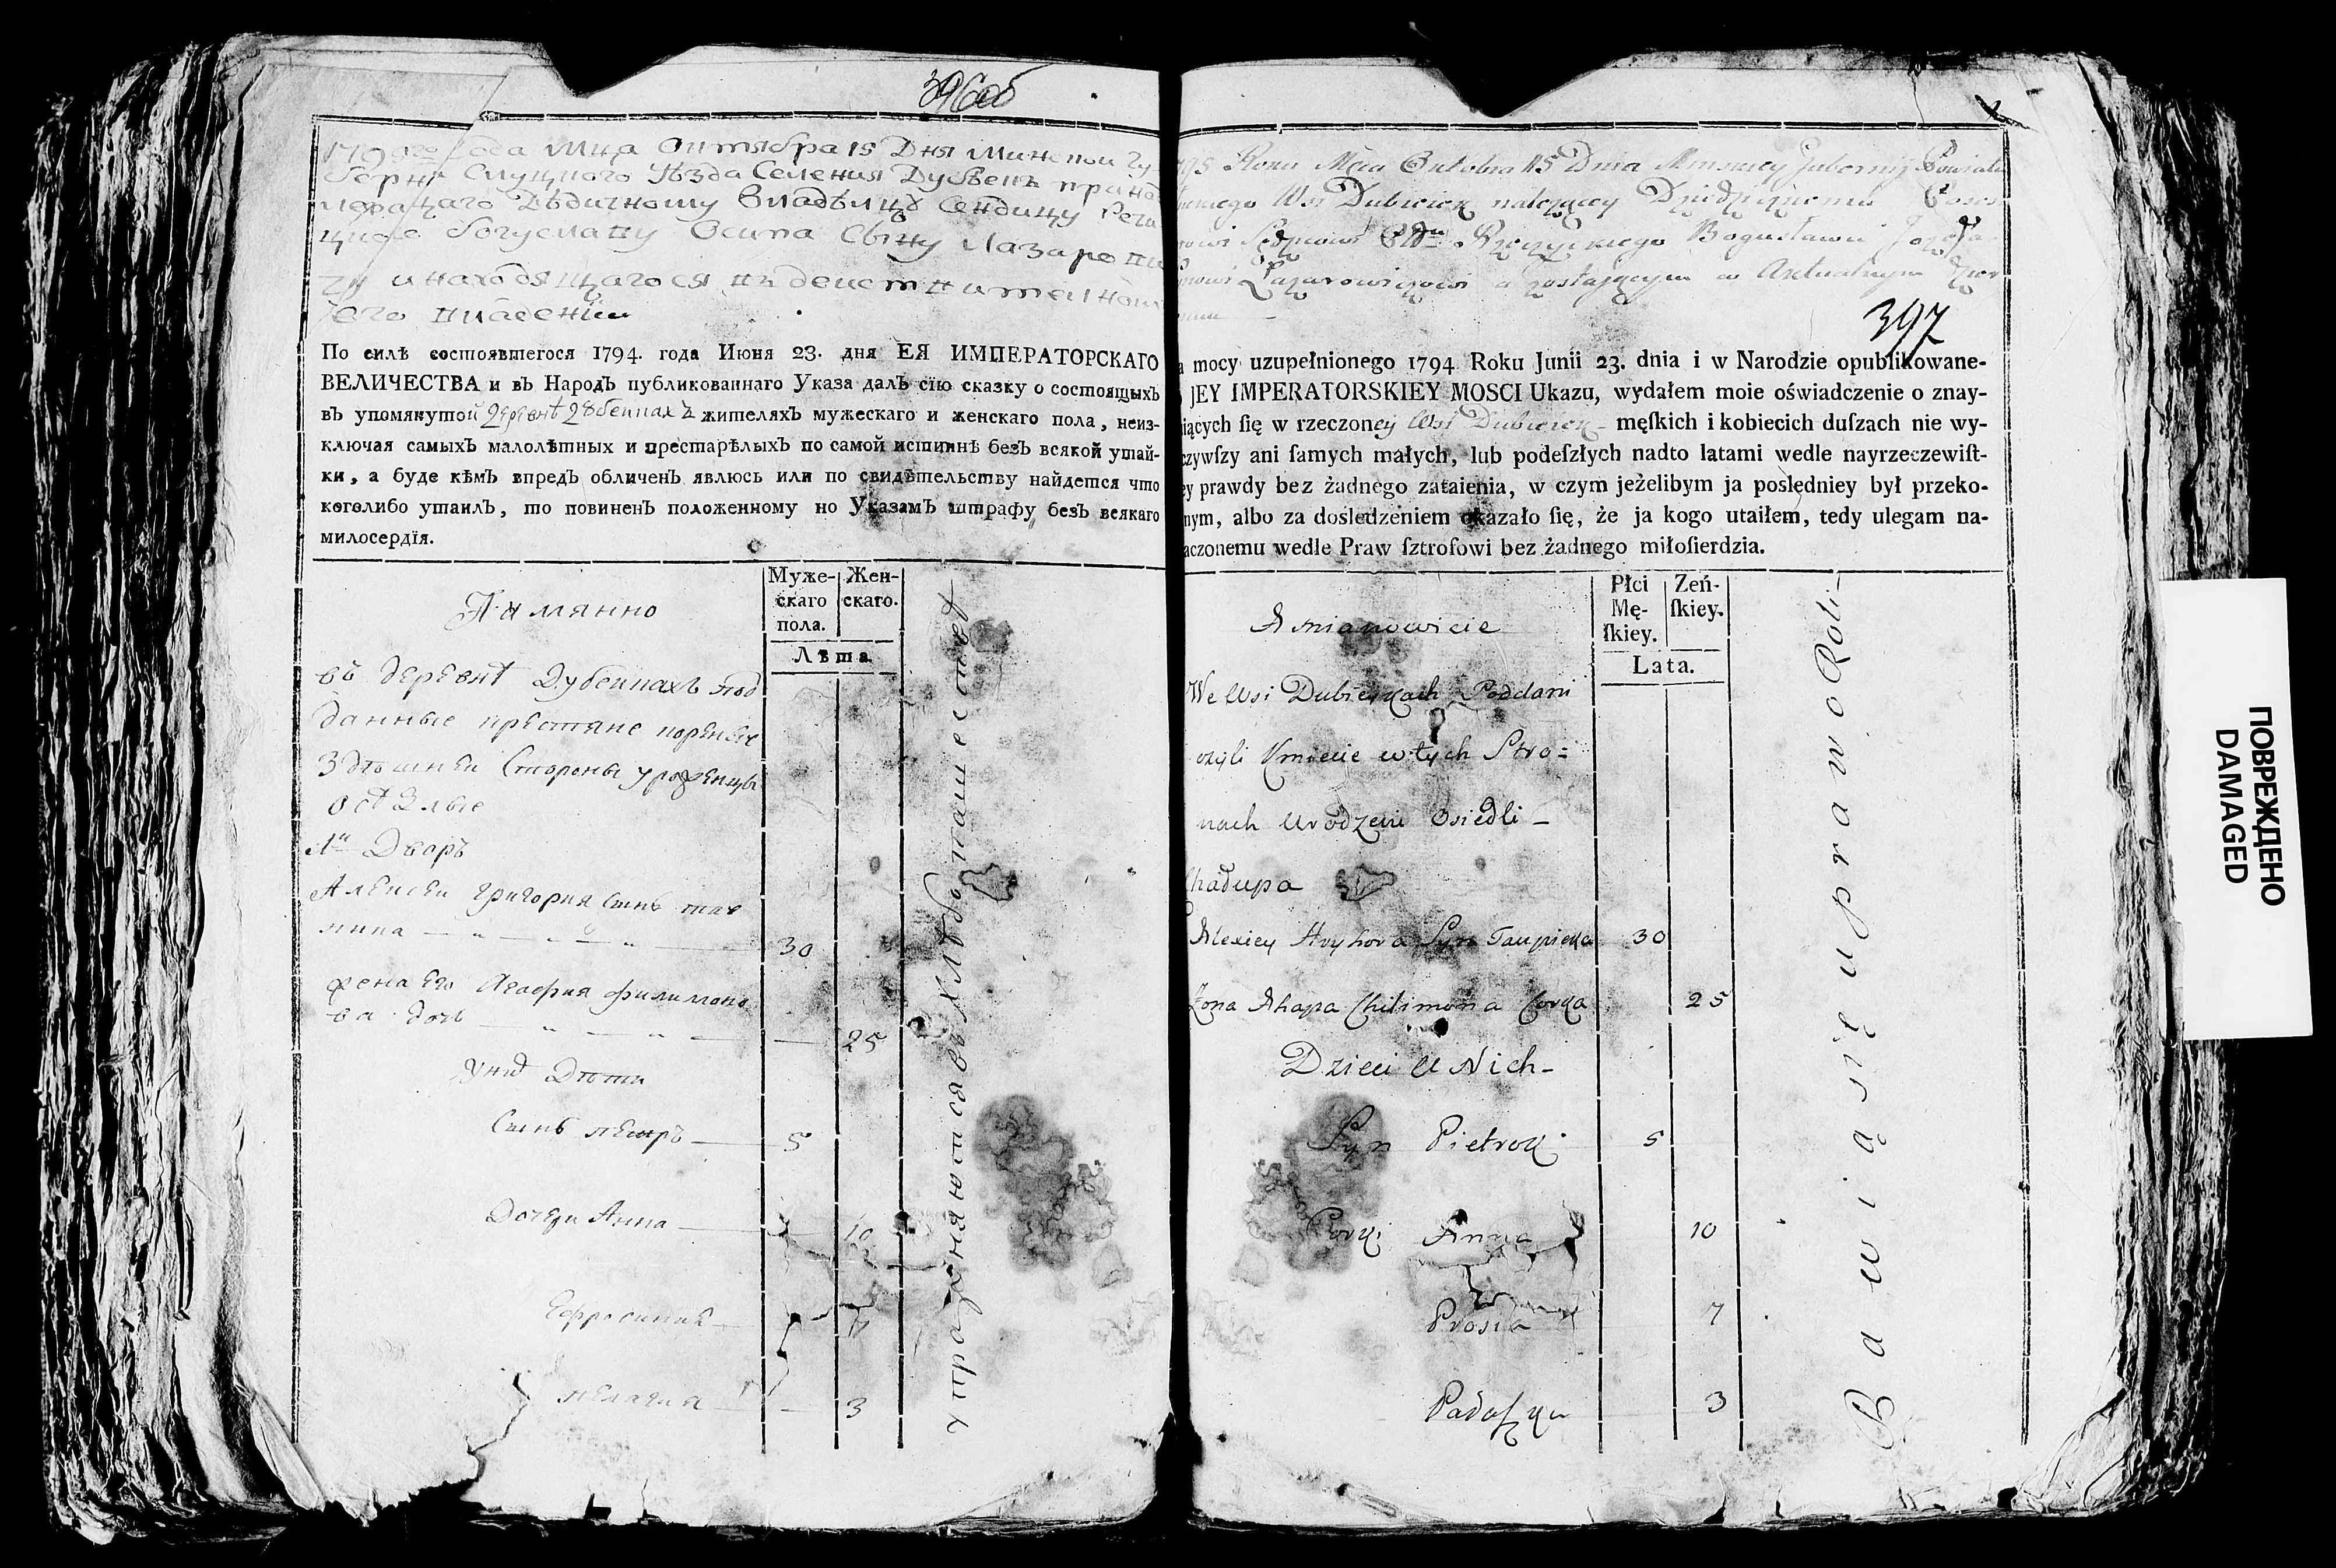 396об
года Мца Октября 15 Дня Минской Гу
берни Слуцкого Уѣзда Селения Дубеекъ принад
лежащаго Дѣдичному Владѣлцу
Богуславу Осипа Сыну Лазарови
чу и находящагося въ
его владении
По силѣ состоявшегося 1794. года Июня 23. дня ЕЯ ИМПЕРАТОРСКАГО
ВЕЛИЧЕСТВА и въ Народъ публикованнаго Указа далъ сїю сказку о состоящыхъ
въ упомянутой деревнѣ жителяхъ мужескаго и женскаго пола, неиз-
ключая самыхъ малолѣтныхъ и престарѣлыхъ по самой истиннѣ безъ всякой утай-
ки, а буде кѣмъ впредъ обличенъ явлюсь или по свидѣтельству найдется что
коголибо утаилъ, то повиненъ положенному по Указамъ штрафу безъ всякаго
милосердїя.
Муже-
скаго
пола.
Жен-
скаго.
Лѣта
Имянно
въ деревнѣ под
данные крестяне
здѣшней Стороны уроженцы
осѣдлые
1й Дворъ
Алексеи Григория Сынъ
30
жена Его Агафия Филимоно
ва дочь 25
у них Дѣти
Сынъ Петръ 5
Дочери Анна 10
Ефросиния 7
Пелагия 3
упражняются въ хлѣбопашествѣ
397
Roku Mca Oktobra 15 Dnia Minskiey Gubernij Powiatu
Wsi Dubieiek należącey Dziedzicznemu
Rzeczyckiego Bogusławu Jozefa
Łazarowiczowi a zostającym w Aktualnym
a mocy uzupełnionego 1794 Roku Junii 23. dnia i w Narodzie opublikowane-
JEY IMPERATORSKIEY MOSCI Ukazu, wydałem moie oświadczenie o znay-
iących ſię w rzeczoney Wsi męſkich i kobiecich duſzach nie wy-
czywſzy ani ſamych małych, lub podeſzłych nadto latami wedle nayrzeczewiſt-
ey prawdy bez żadnego zataienia, w czym jeżelibym ja poslędniey był przeko-
nym, albo za dosledzeniem okazało ſię, że ja kogo utaiłem, tedy ulegam na-
aczonemu wedle Praw ſztrofowi bez żadnego miłoſierdzia.
Płci
Mę-
ſkiey.
Zeń-
ſkiey.
Lata.
Amianowicie
We Wsi Poddani
czyli Kmiecie w tych Stro=
nach Urodzeni Osiedli
Chadupa
Alexiey Hryhora Syn 30
Żona Ahapa Chilimona Corka 25
Dzieci u Nich
Syn Pietrok 5
Corki Anna 10
Prosia 7
Padaſzka 3
Bawią się uprawo Roli
ПОВРЕЖДЕНО
DAMAGED